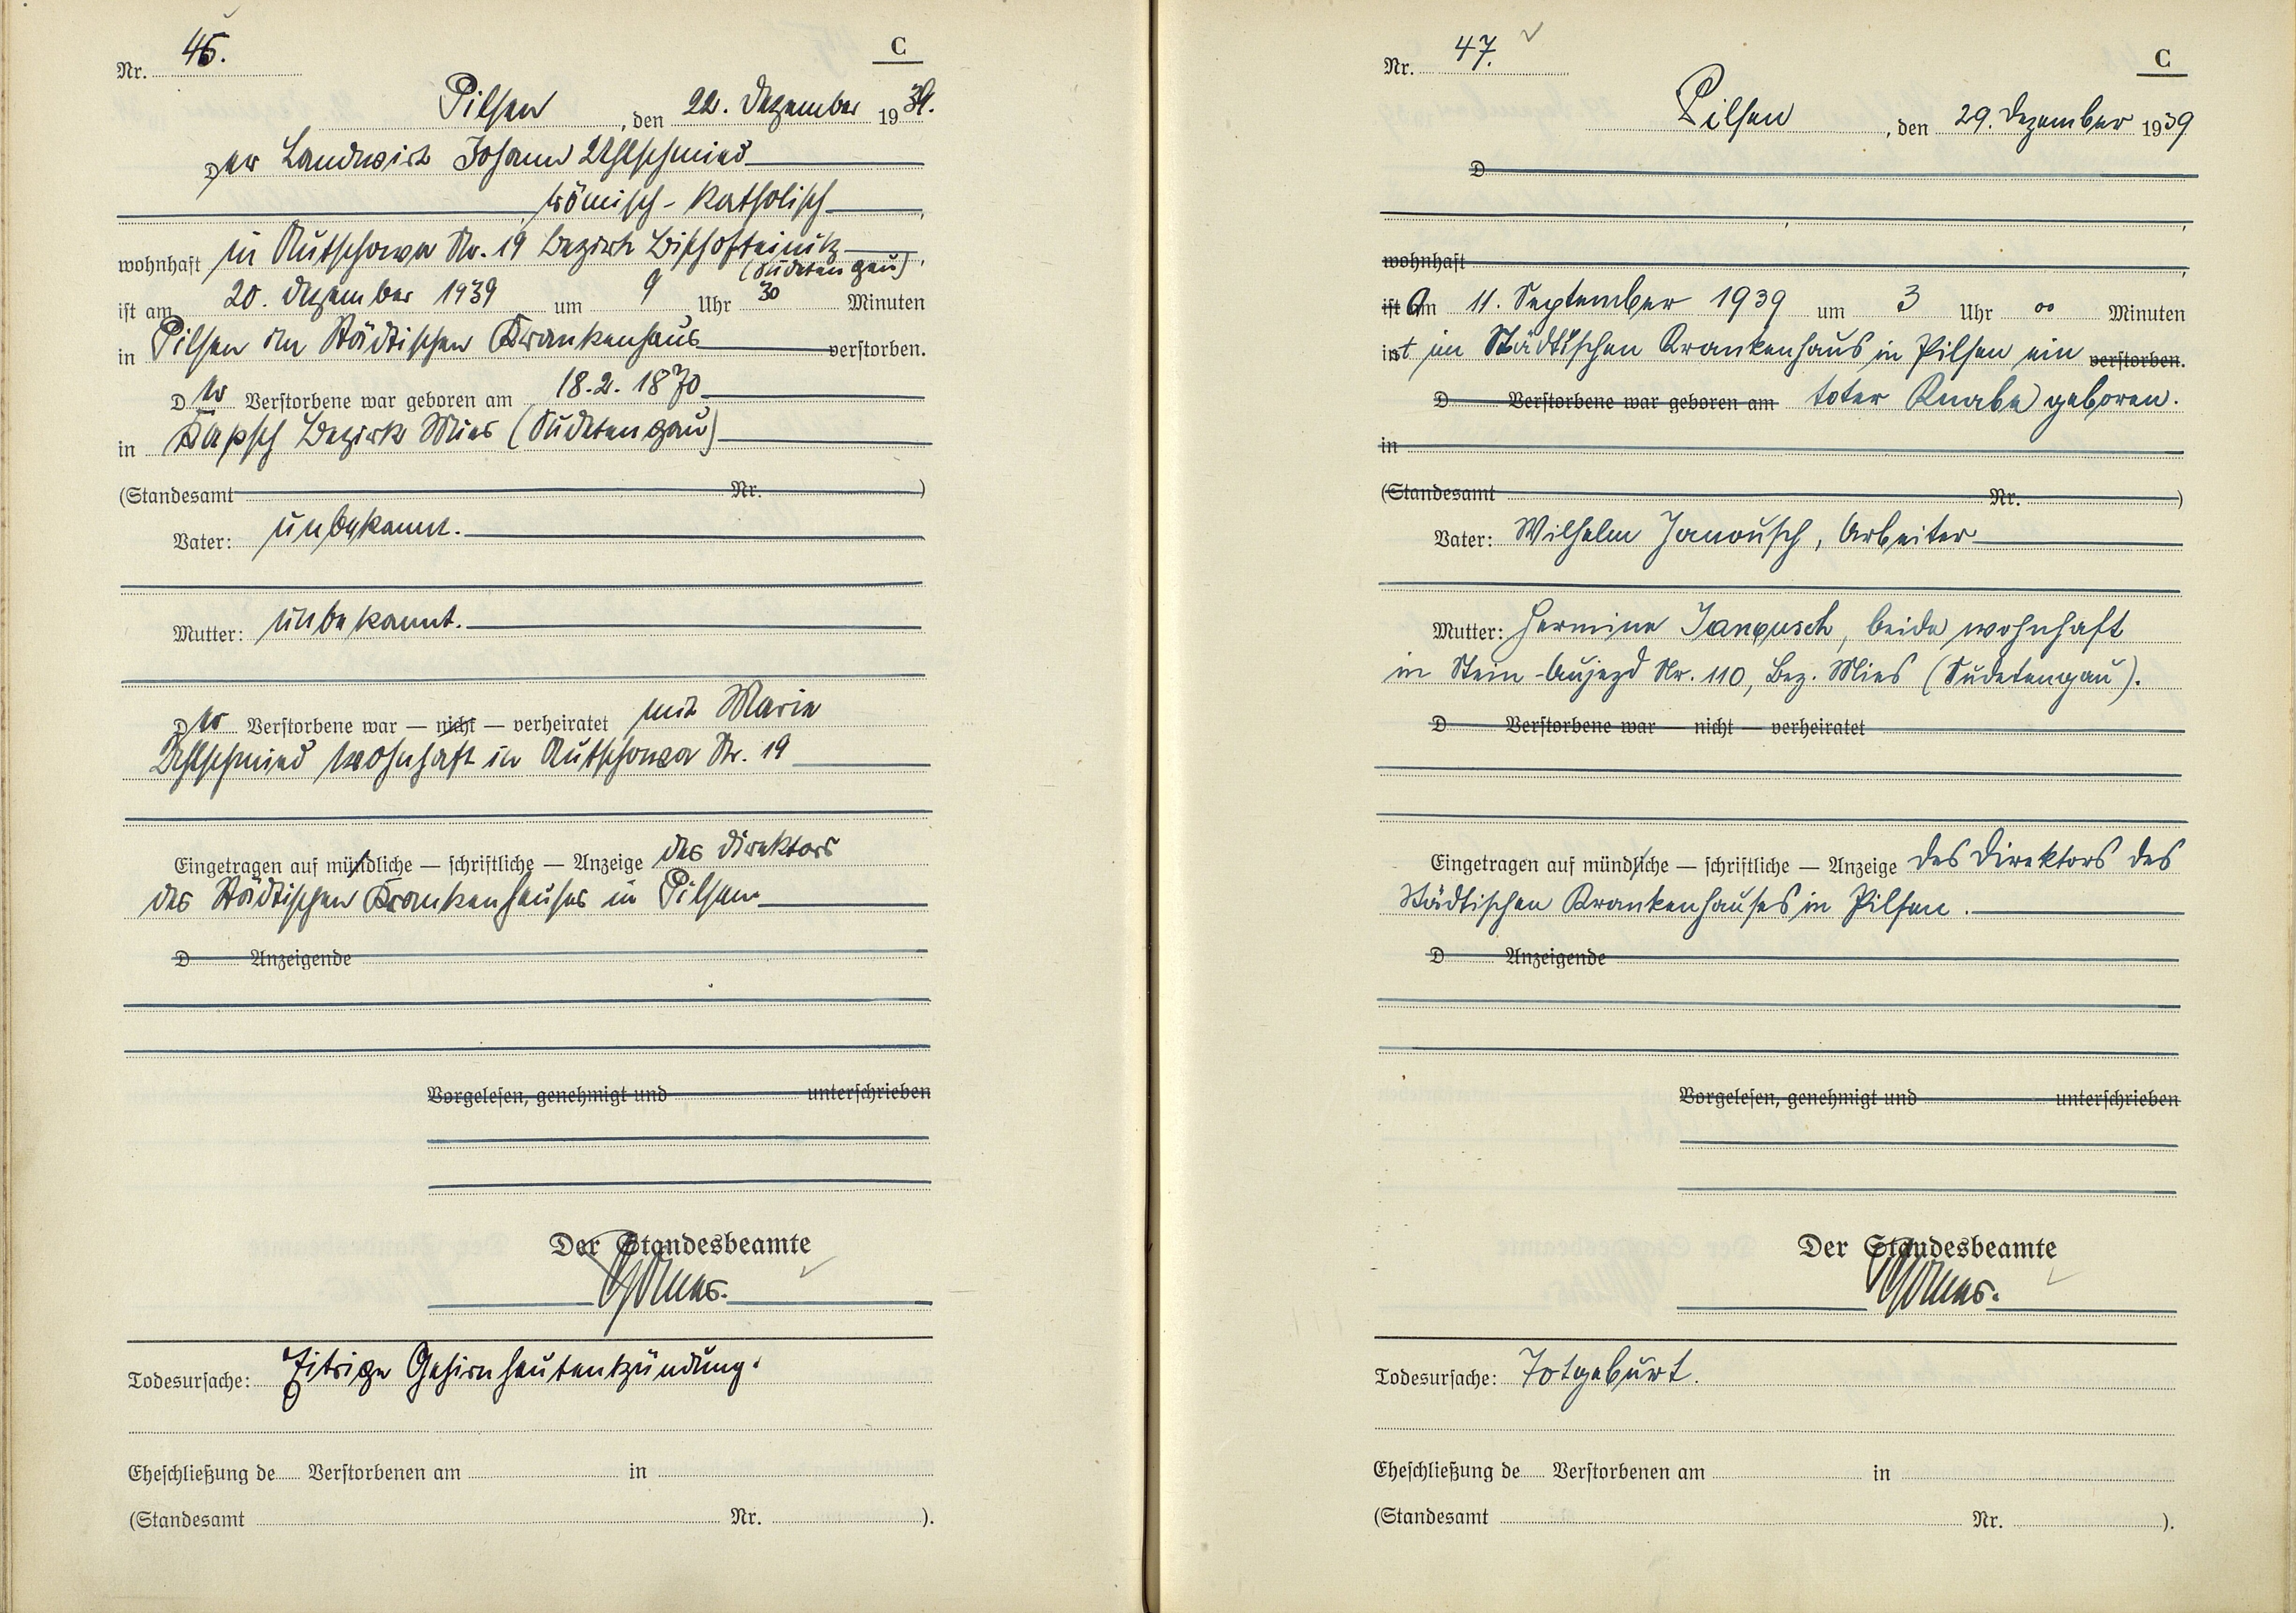 Nr. 46.
C
Pilsen, den 22. Dezember 1939.
Der Landwirt Johann Uhlschmied
römisch-katholisch,
wohnhaft in Autschowa Nr. 19 Bezirk Bischofteinitz
(Sudetengau),
ist am 20. Dezember 1939 um 9 Uhr 30 Minuten
in Pilsen im Städtischen Krankenhaus verstorben.
Der Verstorbene war geboren am 18.2.1870
in Kapsch Bezirk Mies (Sudetengau)
(Standesamt Nr. )
Vater: unbekannt.
Mutter: unbekannt.
Der Verstorbene war — nicht — verheiratet mit Marie
Uhlschmied wohnhaft in Autschowa Nr. 19
Eingetragen auf mündliche — schriftliche — Anzeige des Direktors
des Städtischen Krankenhauses in Pilsen
D Anzeigende
Vorgelesen, genehmigt und unterschrieben
Der Standesbeamte
Todesursache: Eitrige Gehirnhautentzündung.
Eheschließung de Verstorbenen am in
(Standesamt Nr. ).
Nr. 47.
C
Pilsen, den 29. Dezember 1939
D
wohnhaft
ist Am 11. September 1939 um 3 Uhr 00 Minuten
ist im Städtischen Krankenhaus in Pilsen ein verstorben.
D Verstorbene war geboren am toter Knabe geboren.
in
(Standesamt Nr. )
Vater: Wilhelm Janousch, Arbeiter
Mutter: Hermine Janousch, beide wohnhaft
in Stein-Aujezd Nr. 110, Bez. Mies (Sudetengau).
D Verstorbene war — nicht — verheiratet
Eingetragen auf mündliche — schriftliche — Anzeige des Direktors des
Städtischen Krankenhauses in Pilsen.
D Anzeigende
Vorgelesen, genehmigt und unterschrieben
Der Standesbeamte
Todesursache: Totgeburt.
Eheschließung de Verstorbenen am in
(Standesamt Nr. ).